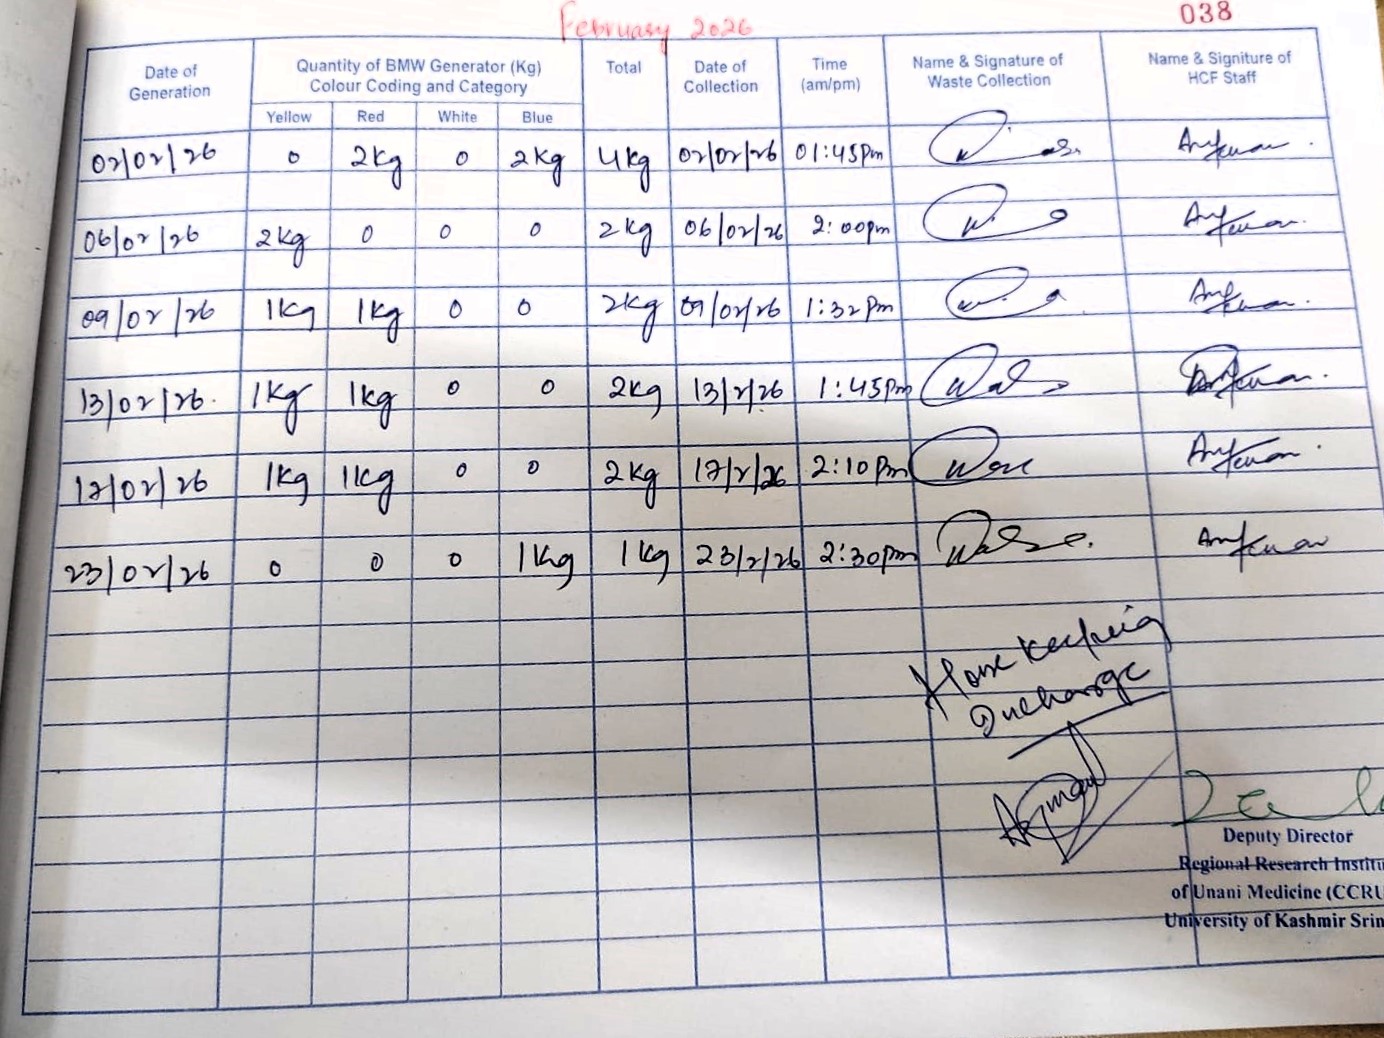 February 2026
038
Date of Generation | Quantity of BMW Generator (Kg) Colour Coding and Category | Total | Date of Collection | Time (am/pm) | Name & Signature of Waste Collection | Name & Signiture of HCF Staff
Yellow | Red | White | Blue
02/02/26 | 0 | 2kg | 0 | 2kg | 4kg | 02/02/26 | 01:45pm
06/02/26 | 2kg | 0 | 0 | 0 | 2kg | 06/02/26 | 2:00pm
09/02/26 | 1kg | 1kg | 0 | 0 | 2kg | 09/02/26 | 1:32pm
13/02/26. | 1kg | 1kg | 0 | 0 | 2kg | 13/2/26 | 1:45pm
17/02/26 | 1kg | 1kg | 0 | 0 | 2kg | 17/2/26 | 2:10pm
23/02/26 | 0 | 0 | 0 | 1kg | 1kg | 23/2/26 | 2:30pm
House Keeping
Incharge
Deputy Director
Regional Research Institu
of Unani Medicine (CCRU
University of Kashmir Srin